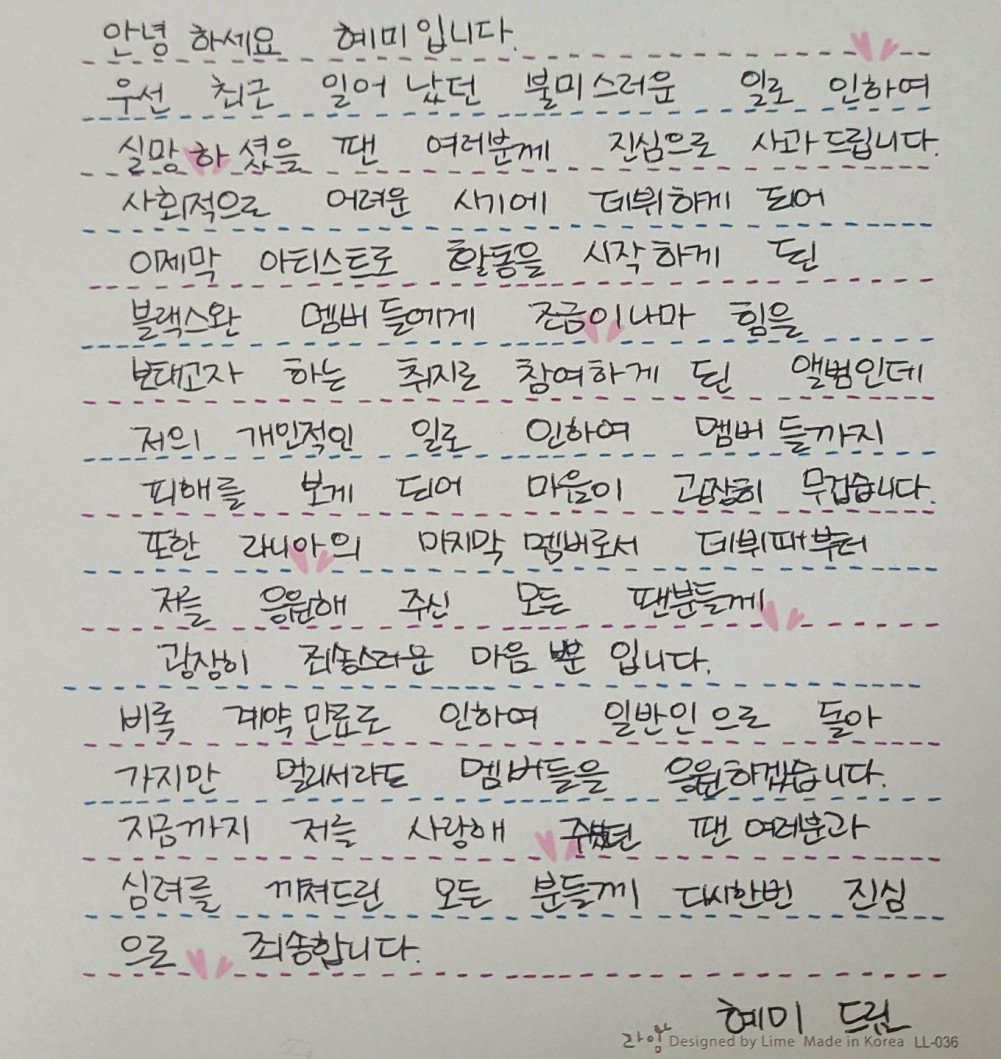 안녕 하세요 혜미입니다.
우선 최근 일어 났던 불미스러운 일로 인하여
실망하셨을 팬 여러분께 진심으로 사과드립니다.
사회적으로 어려운 시기에 데뷔하게 되어
이제막 아티스트로 활동을 시작하게 된
블랙스완 멤버들에게 조금이나마 힘을
보태고자 하는 취지로 참여하게 된 앨범인데
저의 개인적인 일로 인하여 멤버들까지
피해를 보게 되어 마음이 굉장히 무겁습니다.
또한 라니아의 마지막 멤버로서 데뷔때부터
저를 응원해 주신 모든 팬분들께
굉장히 죄송스러운 마음 뿐 입니다.
비록 계약만료로 인하여 일반인으로 돌아
가지만 멀리서라도 멤버들을 응원하겠습니다.
지금까지 저를 사랑해 주셨던 팬 여러분과
심려를 끼쳐드린 모든 분들께 다시한번 진심
으로 죄송합니다.
혜미 드림
라임 Designed by Lime Made in Korea LL-036